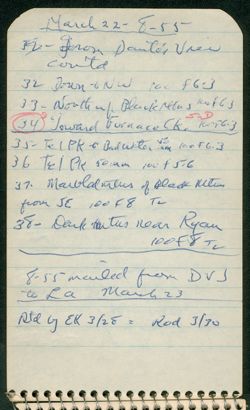 March 22 - 8-55
32 - From Dante's View
cont'd
32 Down + NW 100 F 6.3
33 - North w/ Black Mtns 100 F 6.3
34 Toward Furnace Ck. 100 F 6.3
35 - Te/Pk 100 F 6.3
36 Te/Pk 50 mm 100 f 5.6
37. of Black Mtns
from SE 100 F 8
38 - near Ryan
100 F 8
8-55 mailed from DVJ
to La March 23
Rtd by EK 3/28 = Rod 3/30